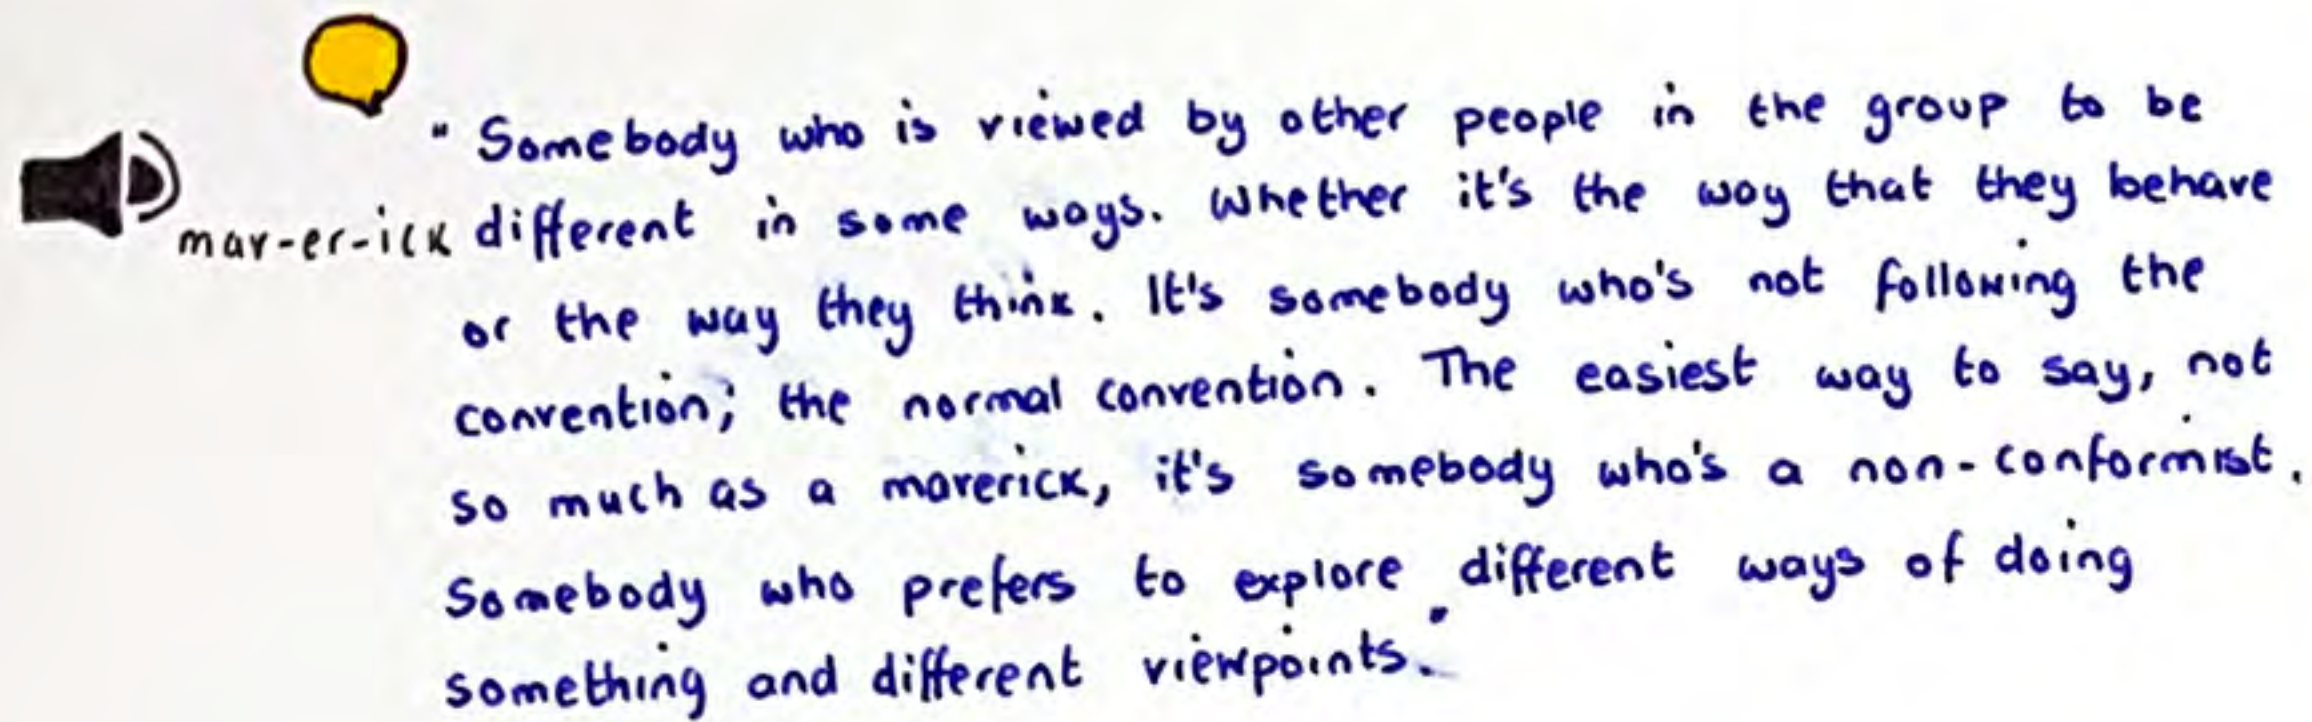 " Somebody who is viewed by other people in the group to be
mav-er-ick different in some ways. Whether it's the way that they behave
or the way they think. It's somebody who's not following the
convention; the normal convention. The easiest way to say, not
so much as a maverick, it's somebody who's a non-conformist.
Somebody who prefers to explore different ways of doing
something and different viewpoints."